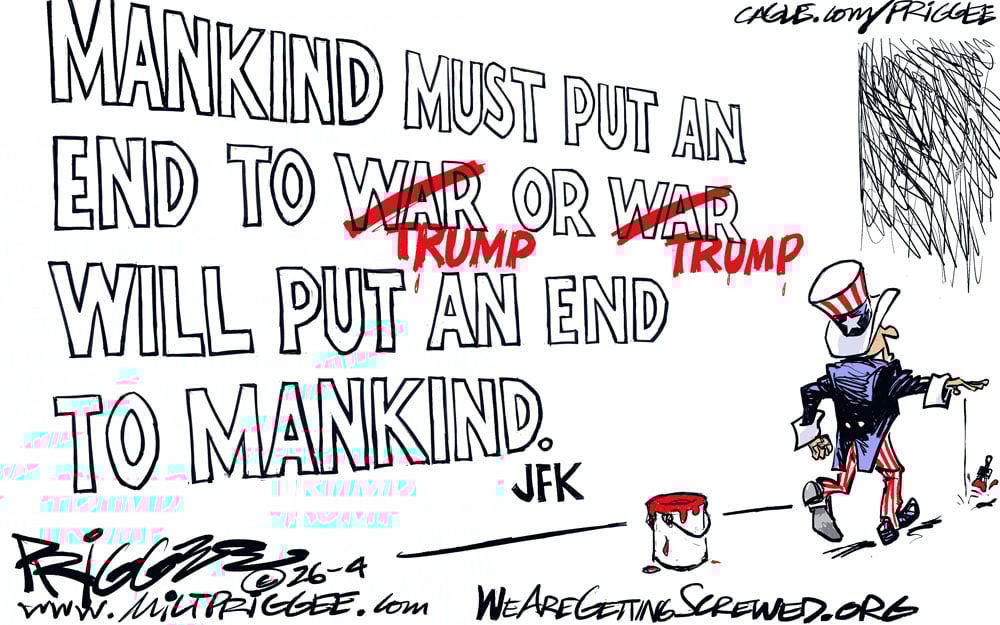 CAGLE.com/PRIGGEE
MANKIND MUST PUT AN
END TO WAR OR WAR
TRUMP TRUMP
WILL PUT AN END
TO MANKIND.
JFK
PRIGGEE
©26-4
www.MILTPRIGGEE.com
WEAREGETTINGSCREWED.ORG